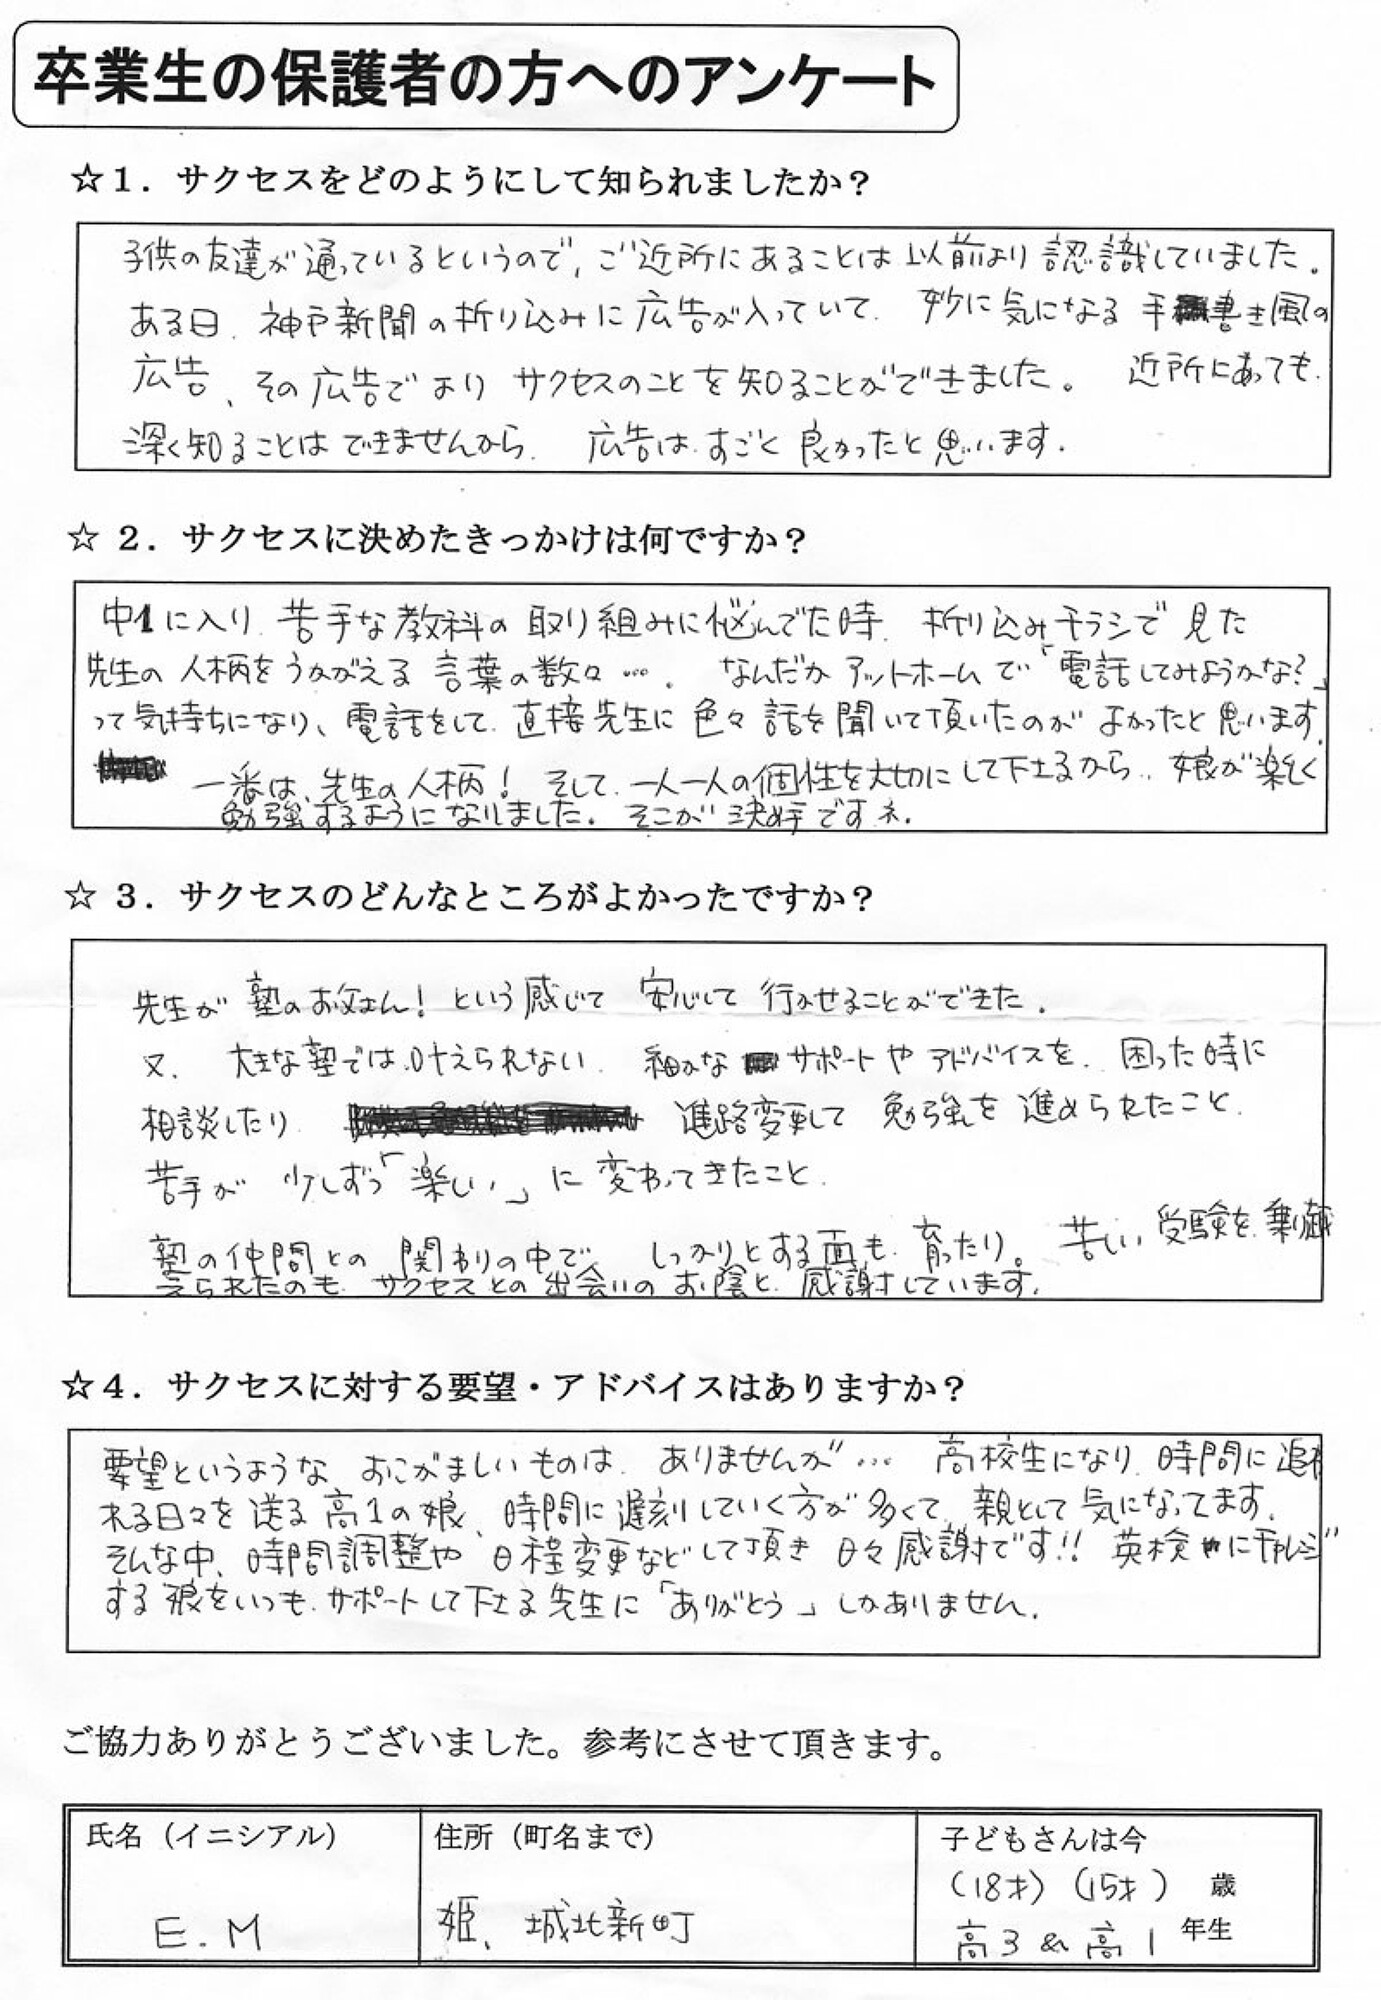 卒業生の保護者の方へのアンケート
☆１．サクセスをどのようにして知られましたか？
子供の友達が通っているというので、ご近所にあることは以前より認識していました。
ある日、神戸新聞の折り込みに広告が入っていて、妙に気になる手書き風の
広告、その広告でよりサクセスのことを知ることができました。近所にあっても、
深く知ることはできませんから、広告はすごく良かったと思います。
☆２．サクセスに決めたきっかけは何ですか？
中1に入り、苦手な教科の取り組みに悩んでた時、折り込みチラシで見た
先生の人柄をうかがえる言葉の数々…。なんだかアットホームで「電話してみようかな？」
って気持ちになり、電話をして、直接先生に色々話を聞いて頂いたのがよかったと思います。
一番は、先生の人柄！そして、一人一人の個性を大切にして下さるから、娘が楽しく
勉強するようになりました。そこが決め手ですネ。
☆３．サクセスのどんなところがよかったですか？
先生が塾のお父さん！という感じで安心して行かせることができた。
又、大きな塾では叶えられない、細かなサポートやアドバイスを、困った時に
相談したり、進路変更して勉強を進められたこと。
苦手が少しずつ「楽しい」に変わってきたこと。
塾の仲間との関わりの中で、しっかりとする面も育ったり。苦しい受験を乗り越
えられたのも、サクセスとの出会いのお陰と、感謝しています。
☆４．サクセスに対する要望・アドバイスはありますか？
要望というような、おこがましいものは、ありませんが…高校生になり、時間に追わ
れる日々を送る高1の娘、時間に遅刻していく方が多くて、親として気になってます。
そんな中、時間調整や日程変更などして頂き日々感謝です!!英検にチャレンジ
する娘をいつもサポートして下さる先生に「ありがとう」しかありません。
ご協力ありがとうございました。参考にさせて頂きます。
氏名（イニシアル）
E.M
住所（町名まで）
姫、城北新町
子どもさんは今
（18才）（15才）歳
高3 & 高1 年生